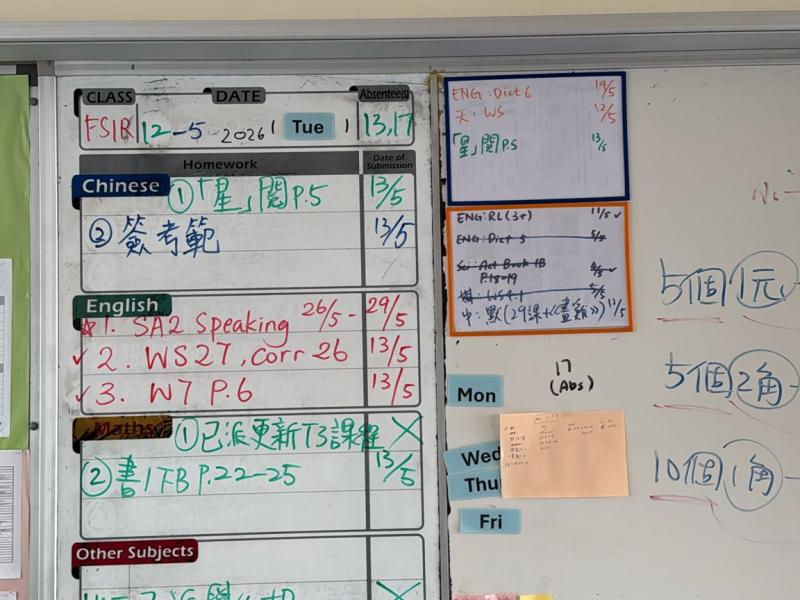 CLASS DATE Absentee(s)
12-5 2026 ( Tue ) 13,17
Homework Date of Submission
Chinese
①「星」閱 P.5 13/5
② 簽考範 13/5
English
1. SA2 Speaking 26/5 - 29/5
✓ 2. WS27, corr 26 13/5
✓ 3. W7 P.6 13/5
Maths
① 已派更新T3課程 ×
② 書1TB P.22-25 13/5
Other Subjects
ENG: Dict 6 19/5
WS 12/5
「星」閱 P.5 13/5
ENG: RL (3+) 11/5 ✓
ENG: Dict 5 5/5
Sci: Act Book 1B
P.18-19
WS4.1 5/5
中: 默(29課+《畫雞》) 12/5
17
(Abs)
Mon
Wed
Thu
Fri
5個 1元
5個 2角
10個 1角